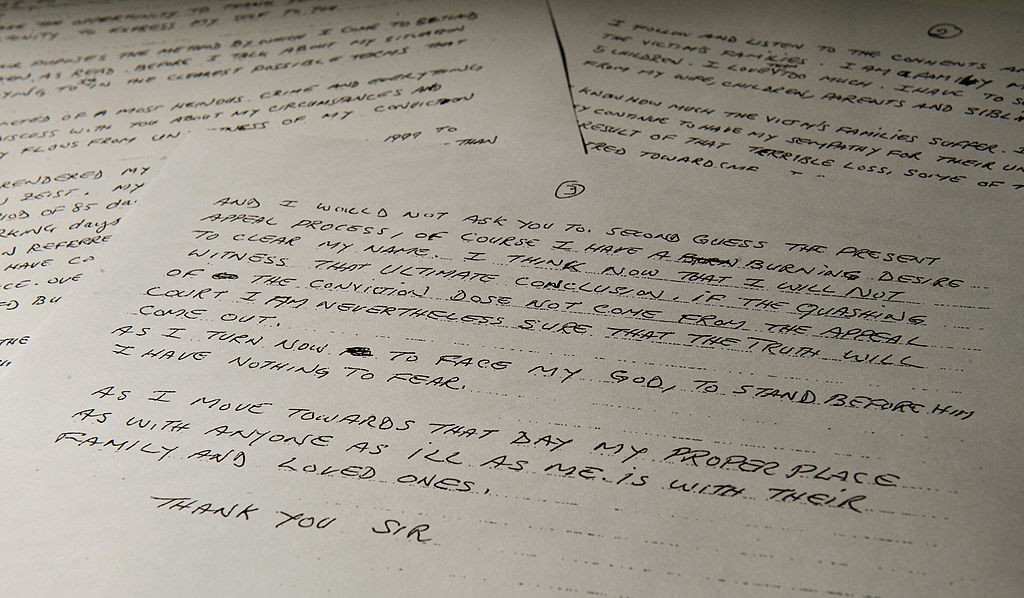 OPPORTUNITY TO THANK YOU
TO EXPRESS MY SELF TO YOU
PURPOSES THE METHOD BY WHICH I COME TO
AS READ. BEFORE I TALK ABOUT MY SITUATION
IN THE CLEAREST POSSIBLE TERMS THAT
OF A MOST HEINOUS CRIME AND EVERYTHING
DISCUSS WITH YOU ABOUT MY CIRCUMSTANCES AND
FLOWS FROM OF MY CONVICTION
1999 TO
THAN
RENDERED MY
ZEIST. MY
OF 85
days
HAVE
THE
2
I FOLLOW AND LISTEN TO THE COMMENTS
THE VICTIM'S FAMILIES. I AM A FAMILY
5 CHILDREN. I LOVE TOO MUCH. I HAVE TO
FROM MY WIFE, CHILDREN, PARENTS AND
KNOW HOW MUCH THE FAMILIES SUFFER. I
CONTINUE TO HAVE MY SEMPATHY FOR THEIR
RESULT OF THAT TERRIBLE LOSS. SOME OF
TOWARDS ME
3
AND I WOULD NOT ASK YOU TO. SECOND GUESS THE PRESENT
APPEAL PROCESS, OF COURSE I HAVE A BURNING DESIRE
TO CLEAR MY NAME. I THINK NOW THAT I WILL NOT
WITNESS THAT ULTIMATE CONCLUSION. IF THE QUASHING
OF THE CONVICTION DOSE NOT COME FROM THE APPEAL
COURT I AM NEVERTHELESS SURE THAT THE TRUTH WILL
COME OUT.
AS I TURN NOW TO FACE MY GOD, TO STAND BEFORE HIM
I HAVE NOTHING TO FEAR.
AS I MOVE TOWARDS THAT DAY MY PROPER PLACE
AS WITH ANYONE AS ILL AS ME. IS WITH THEIR
FAMILY AND LOVED ONES.
THANK YOU SIR